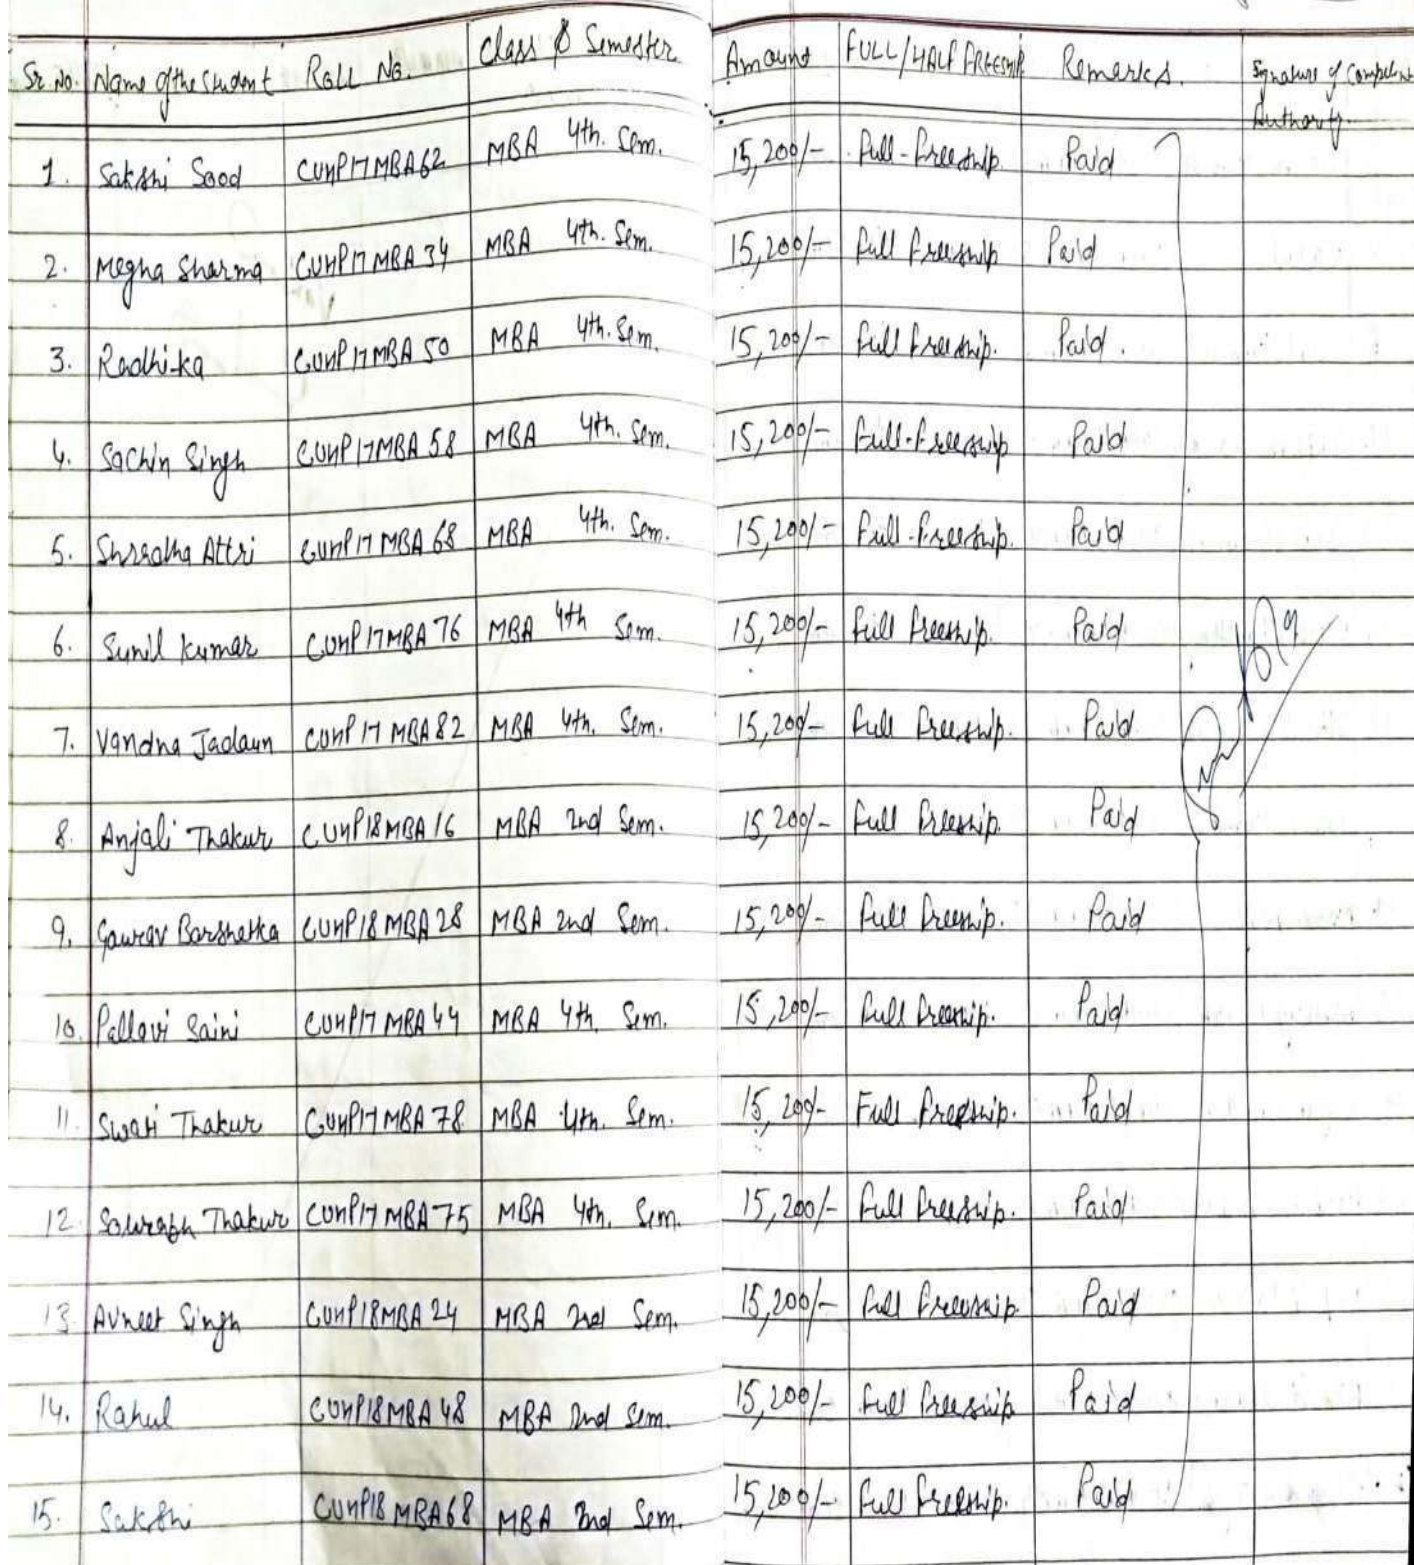 Sr. No. Name of the Student Roll No. Class & Semester Amount FULL/HALF FREESHIP Remarks. Signature of Competent Authority.
1. Sakshi Sood CUHP17MBA62 MBA 4th. Sem. 15,200/- Full-freeship. Paid
2. Megha Sharma CUHP17MBA34 MBA 4th. Sem. 15,200/- Full freeship Paid
3. Radhika CUHP17MBA50 MBA 4th. Sem. 15,200/- Full freeship. Paid.
4. Sachin Singh CUHP17MBA58 MBA 4th. Sem. 15,200/- Full-freeship Paid
5. Shradha Attri CUHP17MBA68 MBA 4th. Sem. 15,200/- Full-freeship. Paid
6. Sunil Kumar CUHP17MBA76 MBA 4th Sem. 15,200/- Full freeship. Paid
7. Vandna Jadaun CUHP17MBA82 MBA 4th. Sem. 15,200/- Full freeship. Paid
8. Anjali Thakur CUHP18MBA16 MBA 2nd Sem. 15,200/- Full freeship. Paid
9. Gaurav Barshetka CUHP18MBA28 MBA 2nd Sem. 15,200/- Full freeship. Paid
10. Pallavi Saini CUHP17MBA44 MBA 4th. Sem. 15,200/- Full freeship. Paid
11. Swati Thakur CUHP17MBA78 MBA 4th. Sem. 15,200/- Full freeship. Paid
12. Saurabh Thakur CUHP17MBA75 MBA 4th. Sem. 15,200/- Full freeship. Paid
13 Avneet Singh CUHP18MBA24 MBA 2nd Sem. 15,200/- Full freeship Paid
14. Rahul CUHP18MBA48 MBA 2nd Sem. 15,200/- Full freeship Paid
15. Sakshi CUHP18MBA68 MBA 2nd Sem. 15,200/- Full freeship. Paid